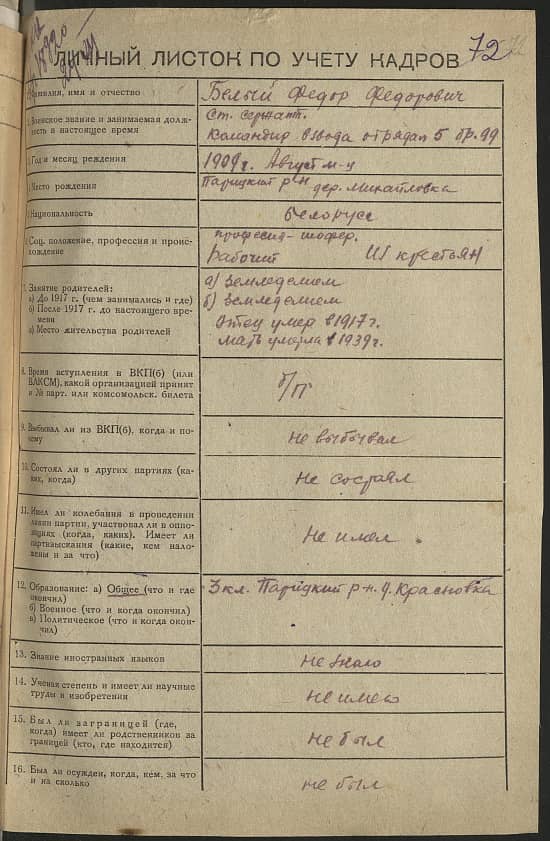 72
ЛИЧНЫЙ ЛИСТОК ПО УЧЕТУ КАДРОВ
Фамилия, имя и отчество
Белый Федор Федорович
Воинское звание и занимаемая долж-
ность в настоящее время
Ст. сержант.
Командир взвода отряда 5 бр. 99
Год и месяц рождения
1909 г. Август м-ц
Место рождения
Парицкий р-н дер. Михайловка
Национальность
Белорусс
Соц. положение, профессия и проис-
хождение
професия - шофер.
Рабочий Из крестьян
Занятие родителей:
а) До 1917 г. (чем занимались и где)
б) После 1917 г. до настоящего вре-
мени
в) Место жительства родителей
а) Земледелием
б) Земледелием
Отец умер в 1917 г.
Мать умерла в 1939 г.
8. Время вступления в ВКП(б) (или
ВЛКСМ), какой организацией принят
и № парт. или комсомольск. билета
б/п
9. Выбывал ли из ВКП(б), когда и по-
чему
Не выбывал
10. Состоял ли в других партиях (ка-
ких, когда)
Не состоял
11. Имел ли колебания в проведении
линии партии, участвовал ли в оппо-
зициях (когда, каких). Имеет ли
партвзыскания (какие, кем нало-
жены и за что)
Не имел
12. Образование: а) Общее (что и где
окончил)
б) Военное (что и когда окончил)
в) Политическое (что и когда окон-
чил)
3 кл. Парицкий р-н. д. Красновка
13. Знание иностранных языков
Не знаю
14. Ученая степень и имеет ли научные
труды и изобретения
Не имею
15. Был ли заграницей (где,
когда) имеет ли родственников за
границей (кто, где находится)
Не был
16. Был ли осужден, когда, кем, за что
и на сколько
не был